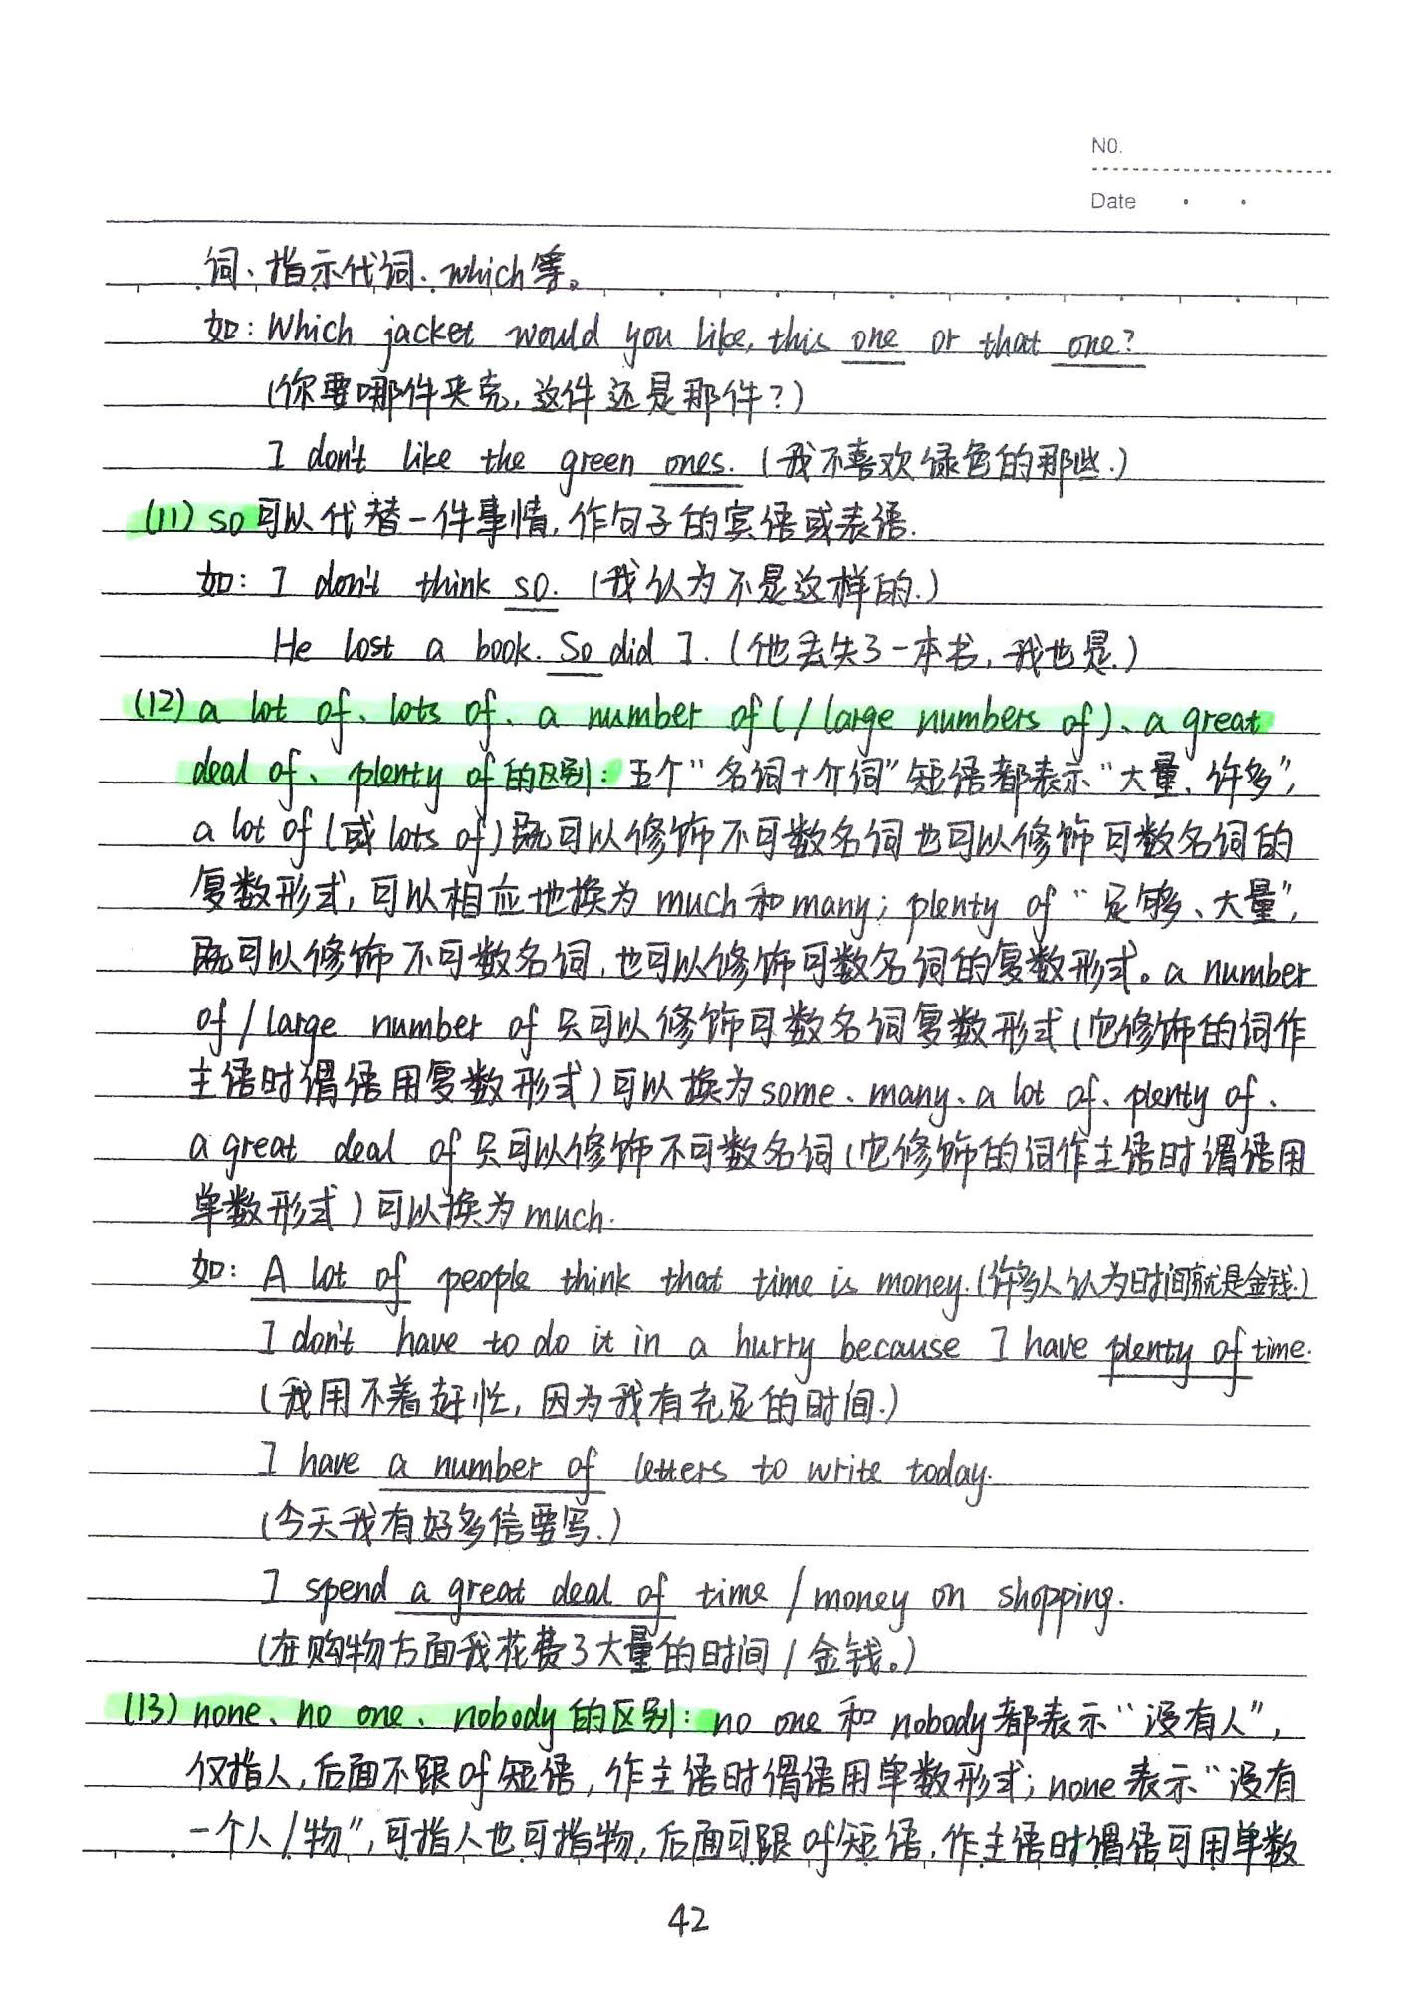 NO.
Date
词、指示代词、which等。
如: Which jacket would you like, this one or that one?
(你要哪件夹克, 这件还是那件?)
I don't like the green ones. (我不喜欢绿色的那些.)
(11) so可以代替一件事情, 作句子的宾语或表语.
如: I don't think so. (我认为不是这样的.)
He lost a book. So did I. (他丢失了一本书, 我也是.)
(12) a lot of、lots of、a number of(/large numbers of)、a great
deal of、plenty of的区别: 五个“名词+介词”短语都表示“大量、许多”,
a lot of(或lots of)既可以修饰不可数名词也可以修饰可数名词的
复数形式, 可以相应地换为much和many; plenty of“足够、大量”,
既可以修饰不可数名词, 也可以修饰可数名词的复数形式。a number
of/large number of只可以修饰可数名词复数形式(它修饰的词作
主语时谓语用复数形式)可以换为some、many、a lot of、plenty of、
a great deal of只可以修饰不可数名词(它修饰的词作主语时谓语用
单数形式)可以换为much.
如: A lot of people think that time is money.(许多人认为时间就是金钱.)
I don't have to do it in a hurry because I have plenty of time.
(我用不着赶忙, 因为我有充足的时间.)
I have a number of letters to write today.
(今天我有好多信要写.)
I spend a great deal of time/money on shopping.
(在购物方面我花费了大量的时间/金钱。)
(13) none、no one、nobody的区别: no one和nobody都表示“没有人”,
仅指人, 后面不跟of短语, 作主语时谓语用单数形式; none表示“没有
一个人/物”, 可指人也可指物, 后面可跟of短语, 作主语时谓语可用单数
42